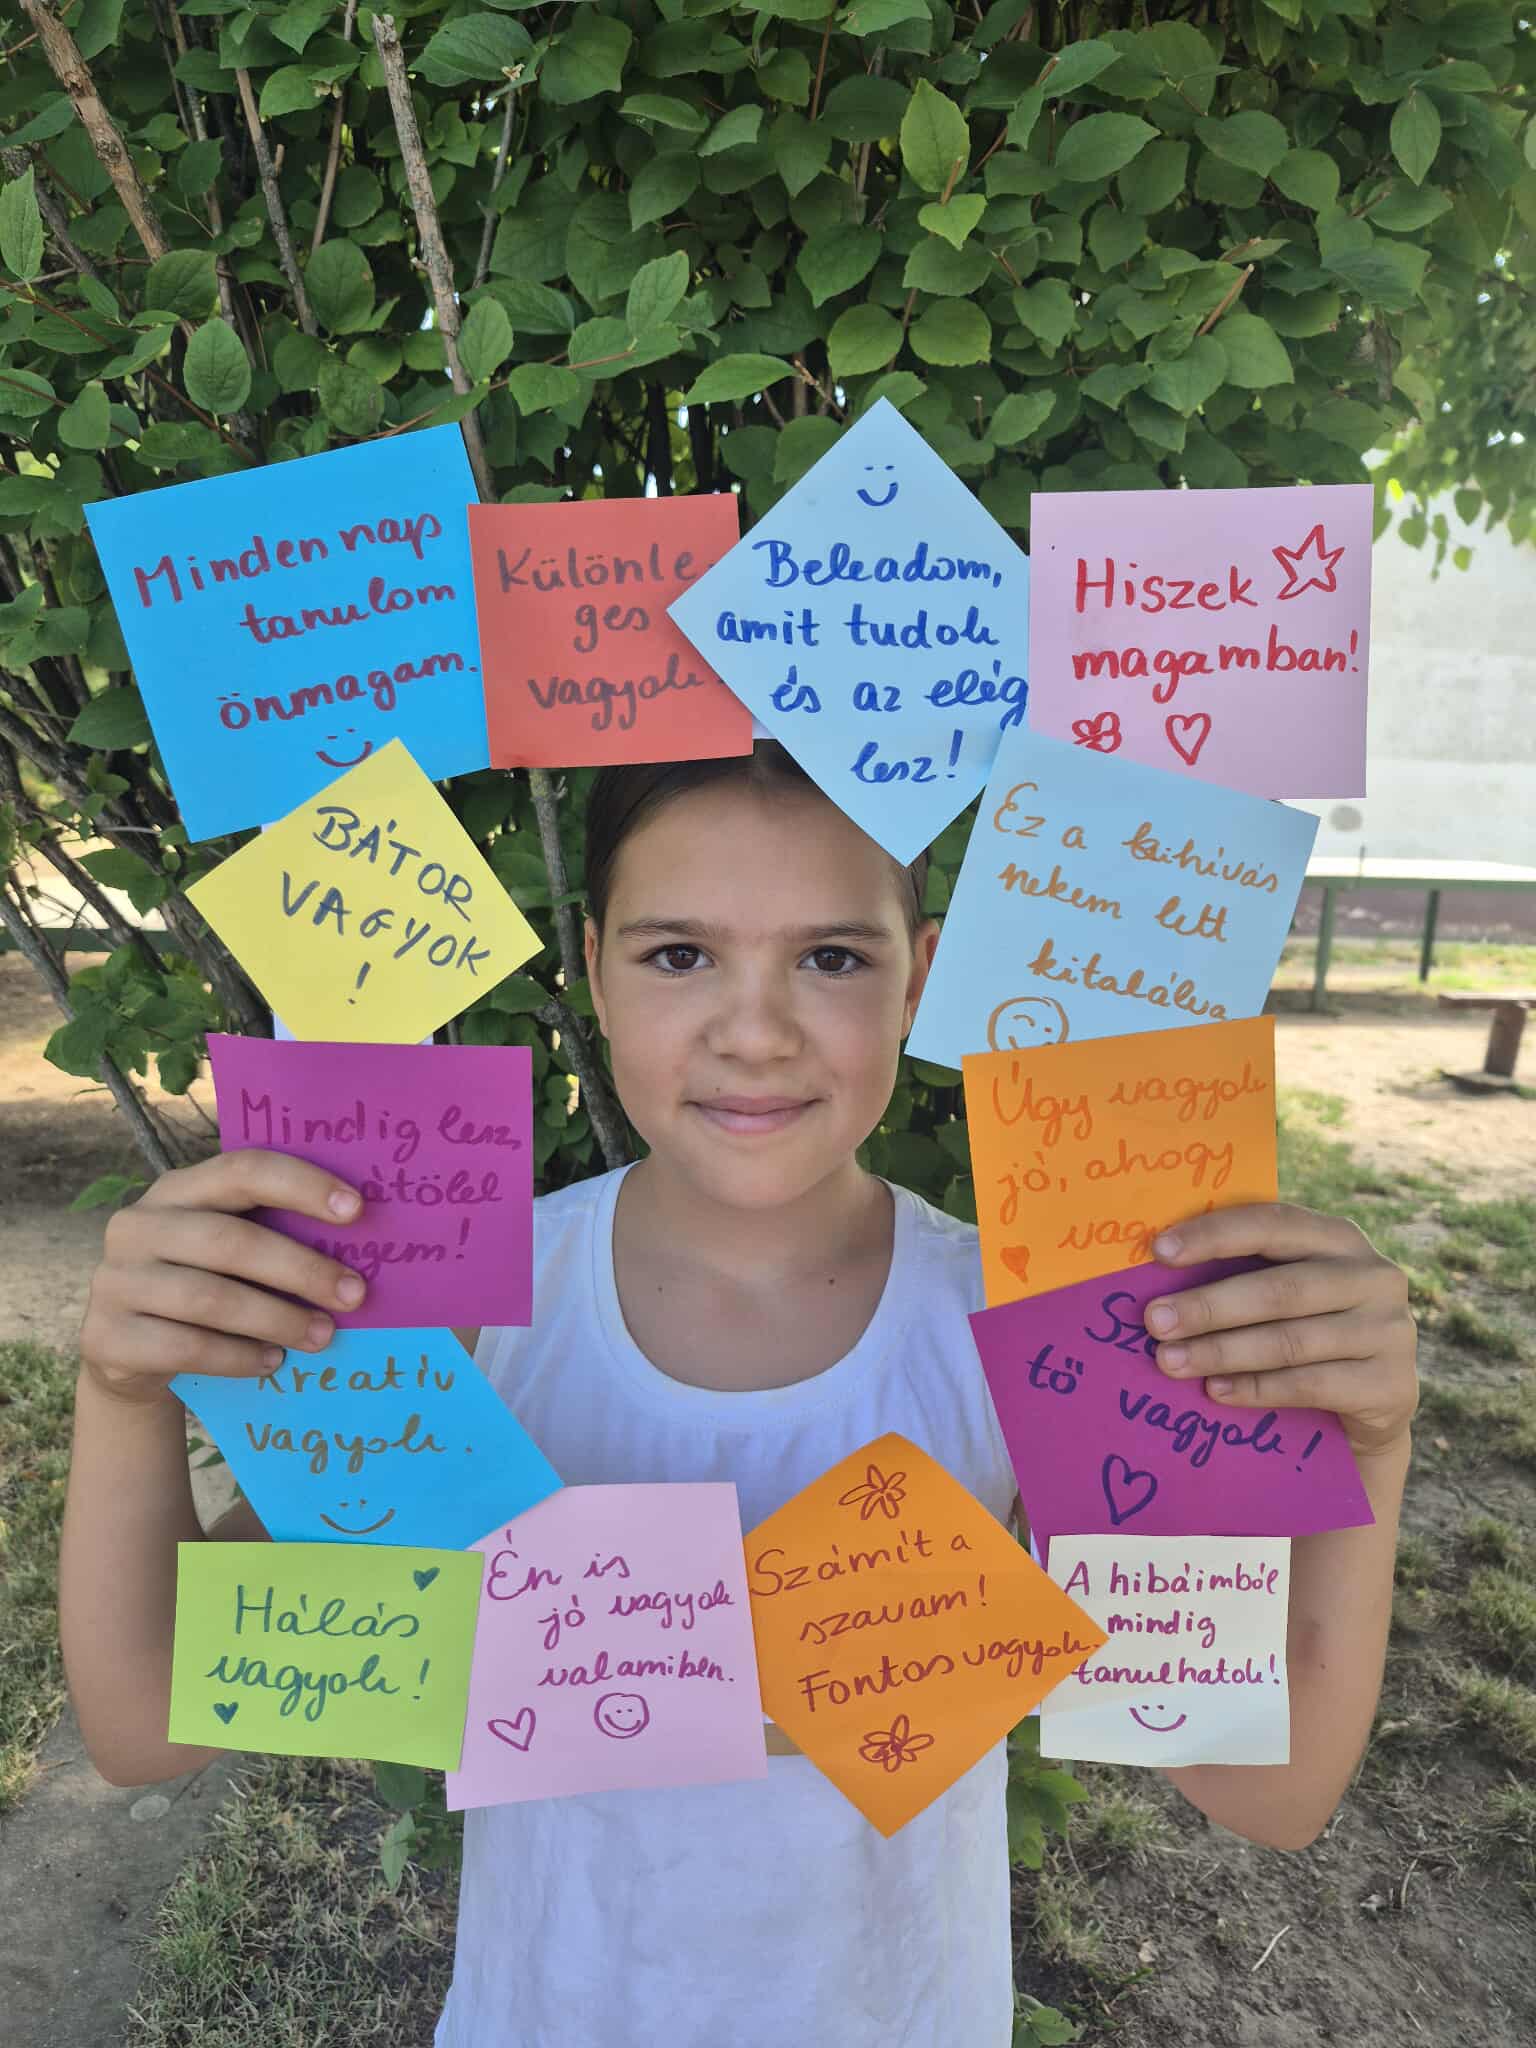 Minden nap
tanulom
önmagam.
Különle-
ges
vagyok
Beleadom,
amit tudok
és az elég
lesz!
Hiszek
magamban!
BÁTOR
VAGYOK
!
Ez a kihívás
nekem lett
kitalálva
Mindig lesz,
átölel
engem!
Úgy vagyok
jó, ahogy
Kreatív
vagyok.
tő vagyok!
Hálás
vagyok!
Én is
jó vagyok
valamiben.
Számít a
szavam!
Fontos vagyok.
A hibáimból
mindig
tanulhatok!